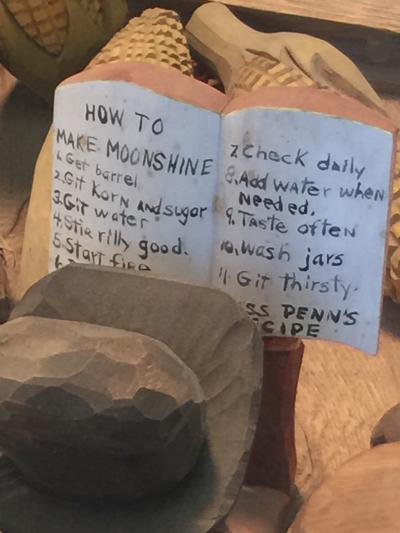 HOW TO
MAKE MOONSHINE
1. Get barrel
2. Git Korn and sugar
3. Git water
4. Stie rilly good.
5. Start fire
6.
7. Check daily
8. Add water when
needed.
9. Taste often
10. Wash jars
11. Git thirsty.
PENN'S